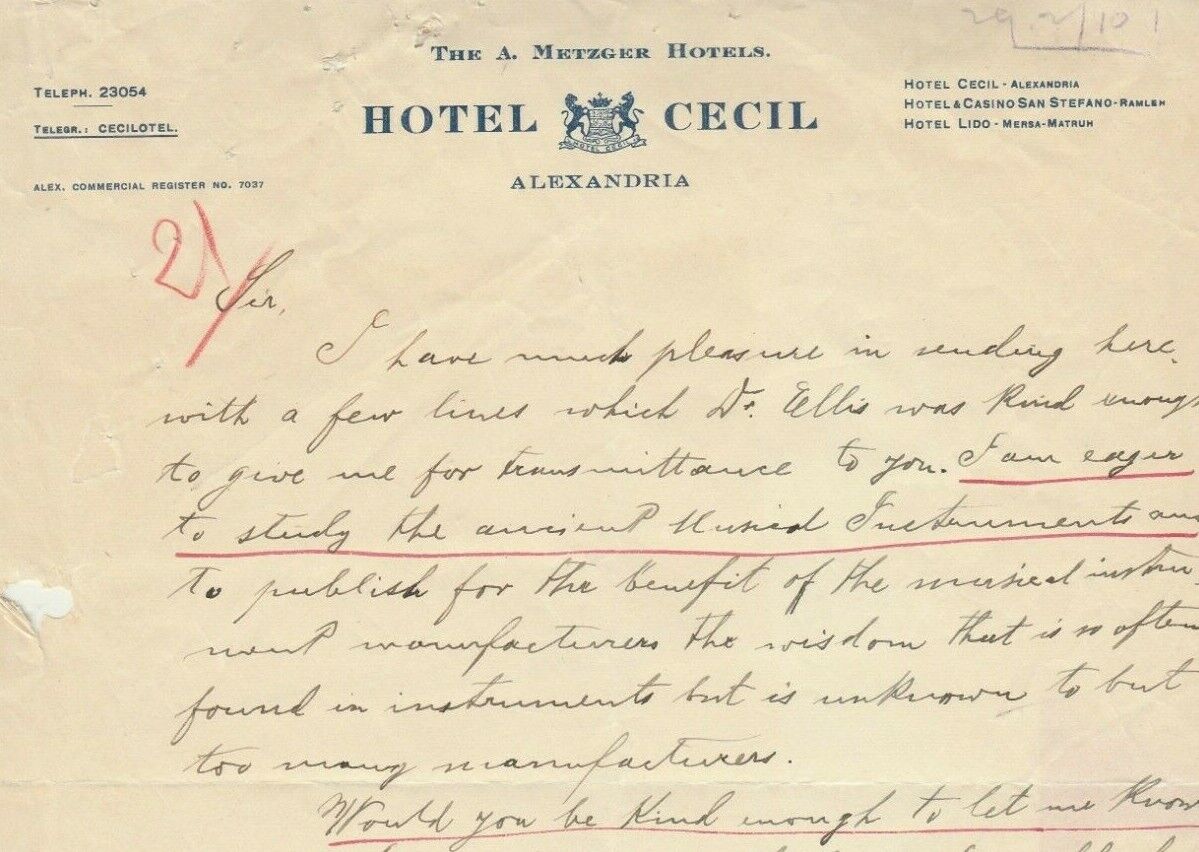 29.2/10
THE A. METZGER HOTELS.
TELEPH. 23054
TELEGR.: CECILOTEL.
HOTEL CECIL
HOTEL CECIL
ALEXANDRIA
HOTEL CECIL - ALEXANDRIA
HOTEL & CASINO SAN STEFANO - RAMLEH
HOTEL LIDO - MERSA-MATRUH
ALEX. COMMERCIAL REGISTER NO. 7037
2)
Sir,
I have much pleasure in sending here,
with a few lines which Dr. Ellis was kind enough
to give me for transmittance to you. I am eager
to study the ancient Musical Instruments an
to publish for the benefit of the musical instru
ment manufacturers the wisdom that is so often
found in instruments but is unknown to but
too many manufacturers.
Would you be kind enough to let me know